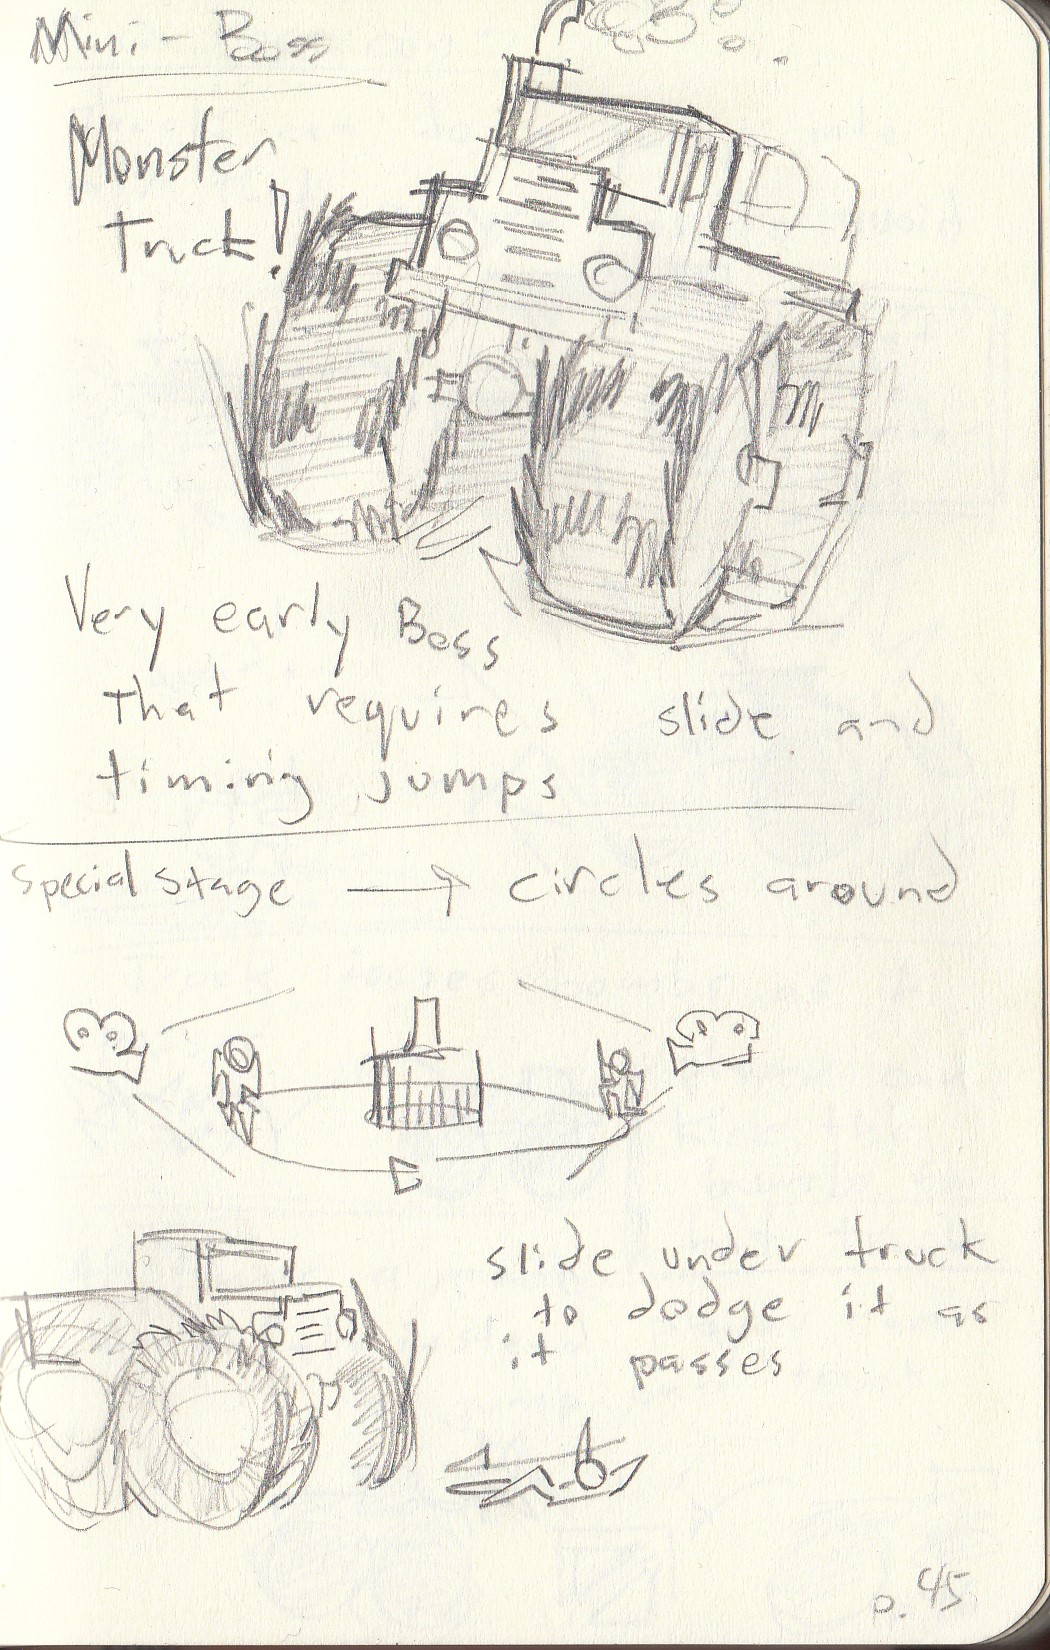 Mini-Boss
Monster
truck!
Very early Boss
that requires slide and
timing jumps
special stage → circles around
slide under truck
to dodge it as
it passes
p.45